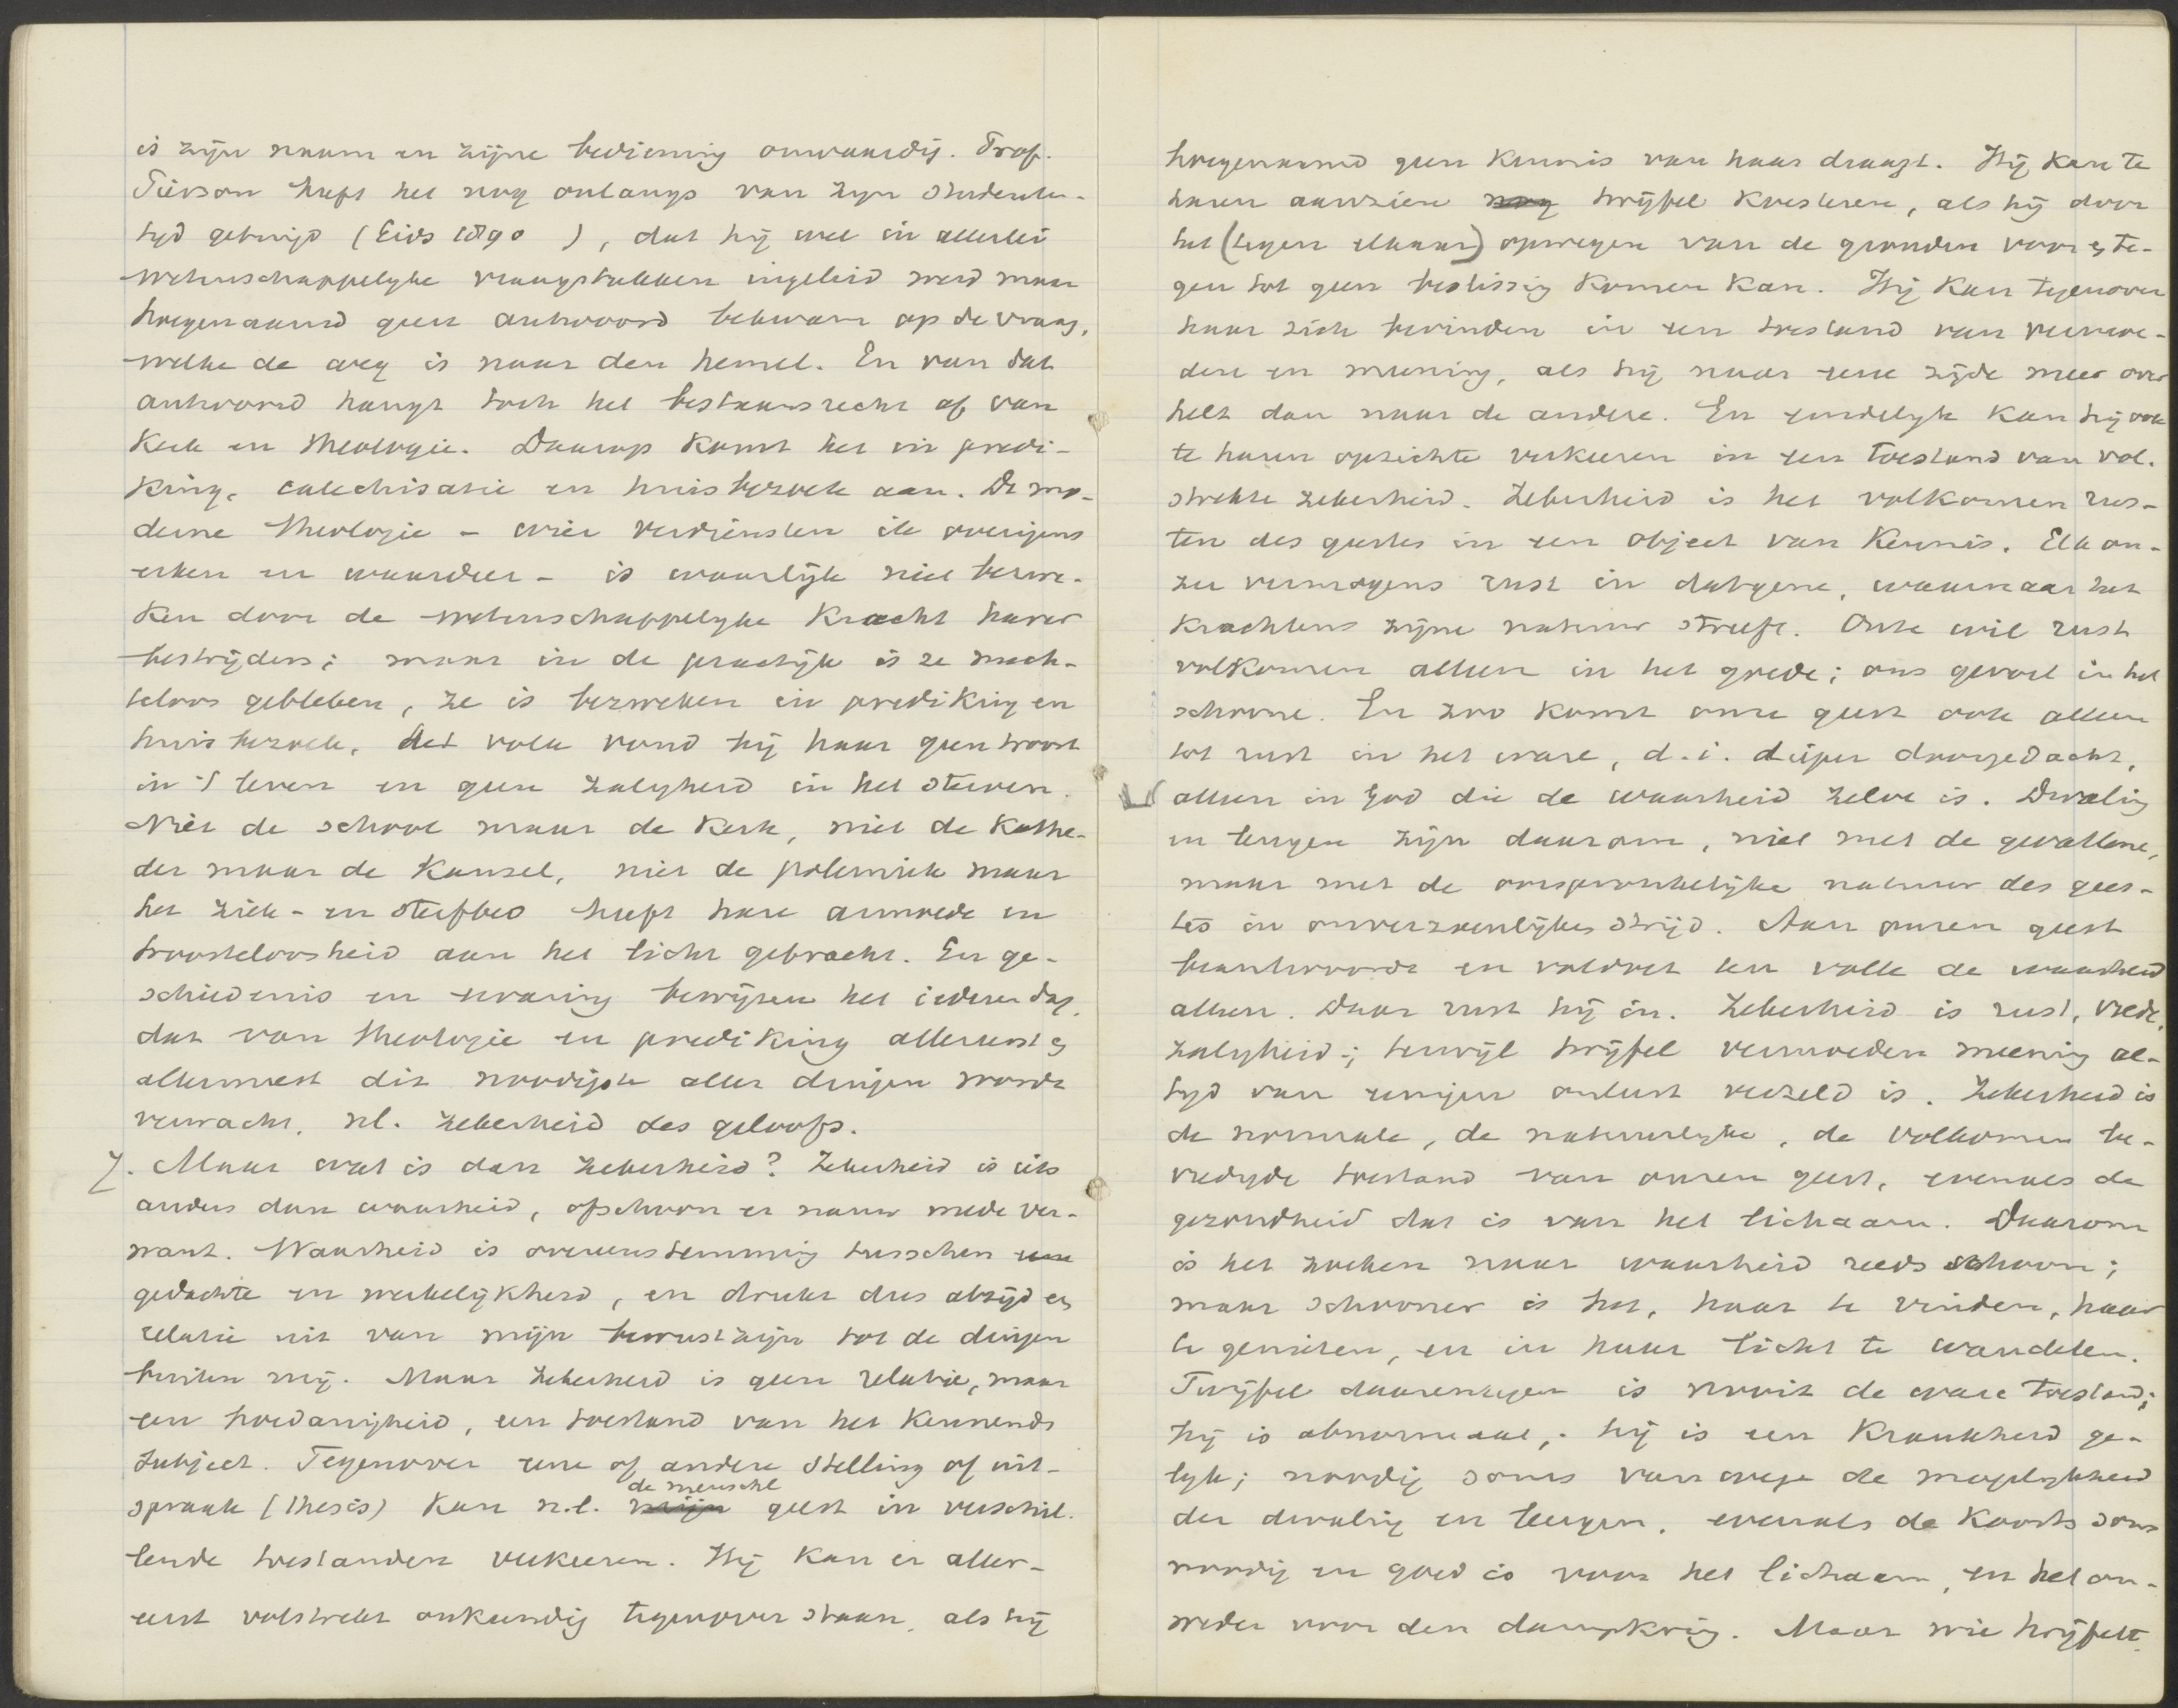 is zijn naam en zijne bediening onwaardig. Prof.
Pierson heeft het nog onlangs van zijn studenten-
tijd getuigd (Eigen Haard), dat hij wel in allerlei
wetenschappelijke vraagstukken ingeleid werd maar
hoegenaamd geen antwoord bekwam op de vraag,
welke de weg is naar den hemel. En van dat
antwoord hangt toch het bestaansrecht af van
Kerk en theologie. Daarop komt het in predi-
king, catechisatie en huisbezoek aan. De mo-
derne theologie – wier verdiensten ik overigens
erken en waardeer – is waarlijk niet bezwe-
ken door de wetenschappelijke kracht harer
bestrijders; maar in de practijk is ze mach-
teloos gebleken, ze is bezweken in prediking en
huisbezoek. Het volk vond bij haar geen troost
in 't leven en geen zaligheid in het sterven.
Niet de school maar de Kerk, niet de Kathe-
der maar de Kansel, niet de polemiek maar
het ziek- en sterfbed heeft hare armoede en
troosteloosheid aan het licht gebracht. En ge-
schiedenis en ervaring bewijzen het iederen dag,
dat van theologie en prediking allereerst &
allermeest dit noodigste aller dingen wordt
verwacht, nl. zekerheid des geloofs.
Maar wat is dan zekerheid? Zekerheid is iets
anders dan waarheid, ofschoon er nauw mede ver-
want. Waarheid is overeenstemming tusschen een
gedachte en werkelijkheid, en drukt dus altijd een
relatie uit van mijn bewustzijn tot de dingen
buiten mij. Maar zekerheid is geen relatie, maar
een hoedanigheid, een toestand van het kennende
subject. Tegenover eene of andere stelling of uit-
de menschel
spraak (thesis) kan n.l. mijn geest in verschil-
lende toestanden verkeeren. Hij kan er aller-
eerst volstrekt onkundig tegenover staan, als hij
hoegenaamd geen kennis van haar draagt. Hij kan te
haren aanzien nog twijfel koesteren, als hij door
het (tegen elkaar) opwegen van de gronden voor & te-
gen tot geen beslissing komen kan. Hij kan tegenover
haar zich bevinden in een toestand van vermoe-
den en meening, als hij naar eene zijde meer over
helt dan naar de andere. En eindelijk kan hij ook
te haren opzichte verkeeren in een toestand van vol-
strekte zekerheid. Zekerheid is het volkomen rus-
ten des geestes in een object van kennis. Elk on-
zer vermogens rust in datgene, waarnaar het
krachtens zijne natuur streeft. Onze wil rust
volkomen alleen in het goede; ons gevoel in het
schoone. En zoo komt onze geest ook alleen
tot rust in het ware, d.i. dieper doorgedacht,
alleen in God die de waarheid zelve is. Dwaling
en leugen zijn daarom, niet met de gevallene,
maar met de oorspronkelijke natuur des gees-
tes in onverzoenlijken strijd. Aan onzen geest
beantwoordt en voldoet ten volle de waarheid
alleen. Daar rust hij in. Zekerheid is rust, vrede,
zaligheid; terwijl twijfel vermoeden meening al-
tijd van eenigen onlust verzeld is. Zekerheid is
de normale, de natuurlijke, de volkomen be-
vredigde toestand van onzen geest, evenals de
gezondheid dat is van het lichaam. Daarom
is het zoeken naar waarheid reeds schoon;
maar schooner is het, haar te vinden, haar
te genieten, en in haar licht te wandelen.
Twijfel daarentegen is nooit de ware toestand;
hij is abnormaal; hij is een krankheid ge-
lijk; noodig soms vanwege de mogelijkheid
der dwaling en leugen, evenals de koorts soms
noodig en goed is voor het lichaam, en het on-
weder voor den dampkring. Maar wie twijfelt